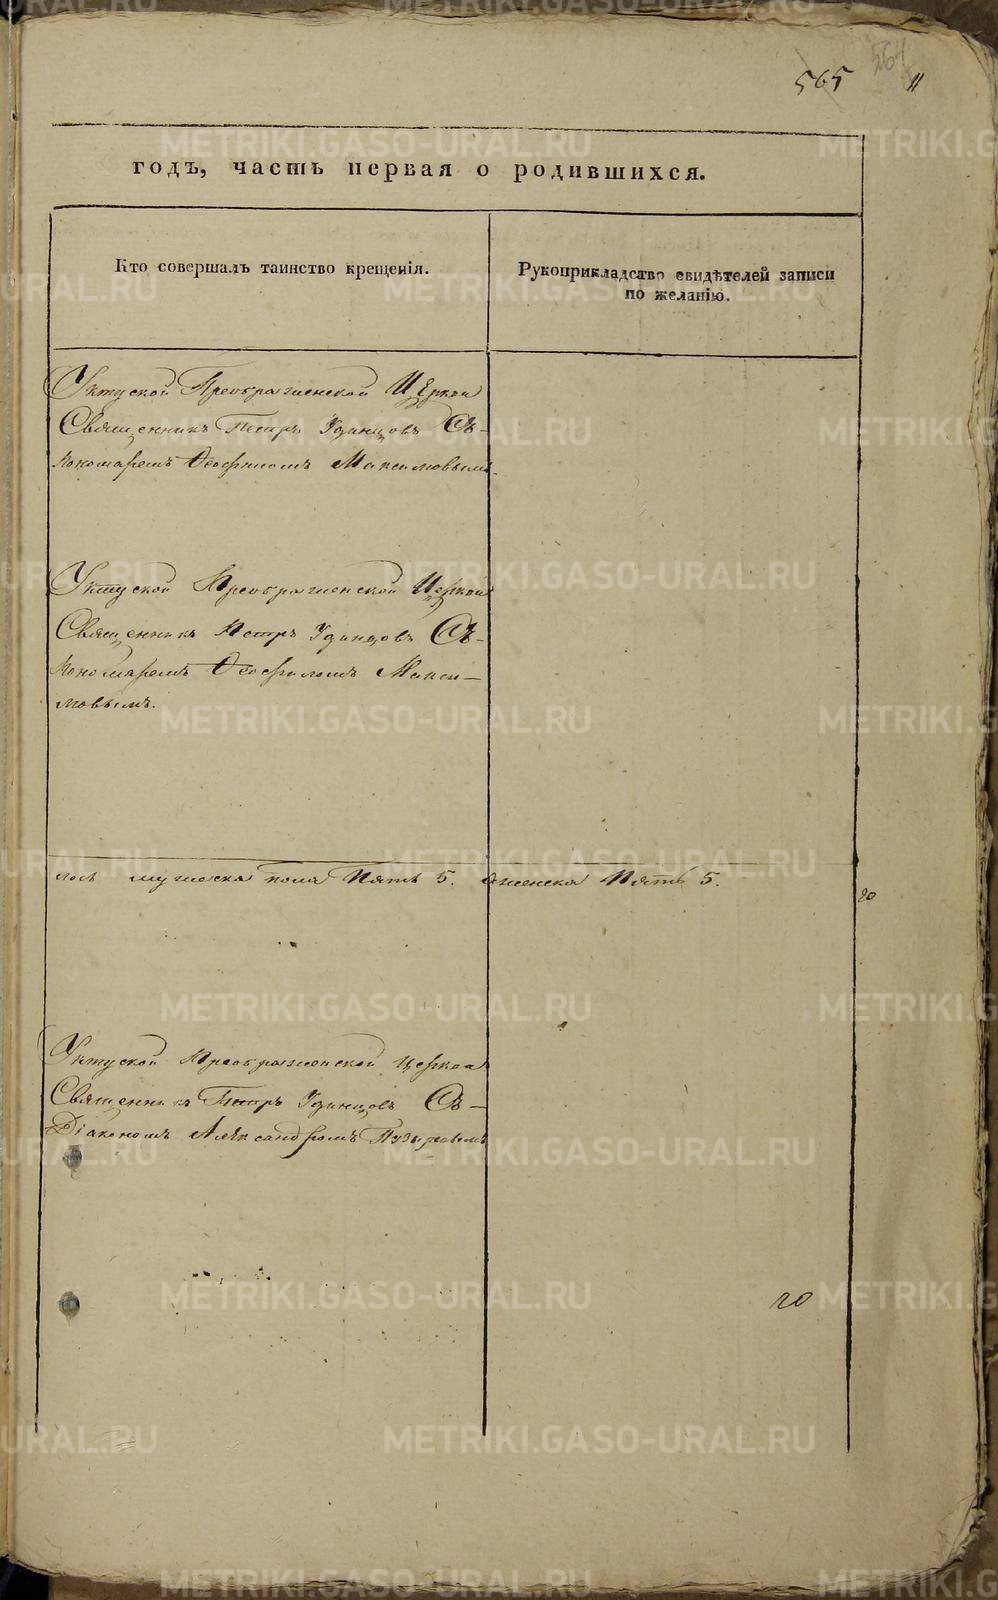 565 564 11
годъ, часть первая о родившихся.
Кто совершалъ таинство крещенія.
Рукоприкладство свидѣтелей записи
по желанію.
Уктуской Преображенской Церкви
Священникъ Петръ Удинцовъ Съ-
Пономаремъ Ѳеофиломъ Максимовымъ.
Уктуской Преображенской Церкви
Священникъ Петръ Удинцовъ Съ-
Пономаремъ Ѳеофиломъ Макси-
мовымъ.
лось мужеска пола Пять 5. Женска Пять 5.
20
Уктуской Преображенской Церкви
Священникъ Петръ Удинцовъ Съ-
Діакономъ Александромъ Пузыревымъ
20
METRIKI.GASO-URAL.RU